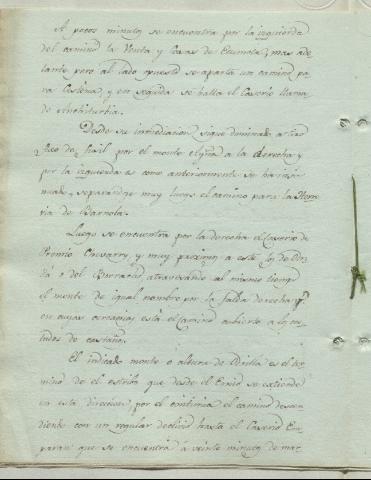 A pocos minutos se encuentra por la izquierda
del camino la Venta y Casas de Ecumeta, mas ade
lante pero al lado opuesto se aparta un camino pa
ra Cestona, y en seguida se halla el Caserio llama
do
Desde su inmediacion sigue dominado a tiro
de fusil por el monte elgua a la derecha y
por la izquierda es como anteriormente se ha insi
nuado, separandose muy luego el camino para la Herre
ria de Barnola.
Luego se encuentra por la derecha el Caserio de
y muy proximo a este los de
o del atravesando al mismo tiempo
el monte de igual nombre por la falda derecha
en cuyas cercanias esta el Camino cubierto a
de castaño.
El indicado monte o altura de es el ter
mino de el estribo que desde el Ernio se extiende
en esta direccion, por el continua el camino descen
diente con un regular declivio hasta el Caserio Em
paran que se encuentra a veinte minutos de mar